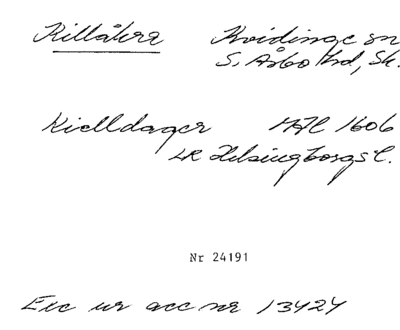 Killåkra Kvidinge sn
S. Åsbo hd, Sk.
Kielldager 1606
LR Helsingborgs l.
Nr 24191
Exc ur acc nr 13424